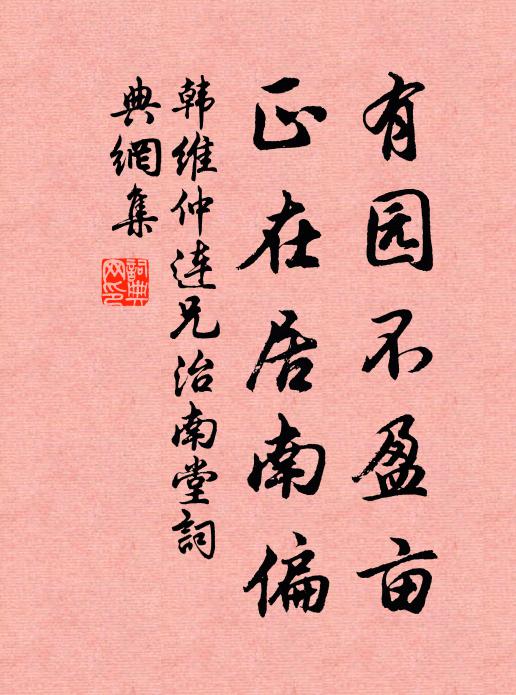 有园不盈亩
正在居南偏
韩维仲连兄治南堂詞
典網集
詞典
网印